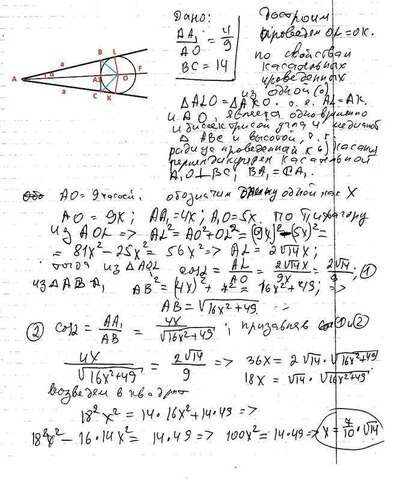 Дано:
AA₁/AO = 4/9
BC = 14
Достроим
проведем OL=OK.
по свойствам
касательных
проведенных
из одной (·)
△ALO = △AKO. т.е. AL=AK.
и AO, является одновременно
и биссектрисой угла и медианой
△ABC и высотой, т.к.
радиус проведенный к (·) касания
перпендикулярен касательной
A₁O⊥BC, BA₁=CA₁.
AO = 9 частей. обозначим длину одной как X
AO = 9X; AA₁=4X; A₁O=5X. по Пифагору
из AOL => AL²=AO²+OL²=(9X)²-(5X)²=
= 81X²-25X²= 56X² => AL= 2√14X;
тогда из △AOL cos α = AL/AO = 2√14X/9X = 2√14/9; ①
из △ABA₁ AB²=(4X)²+7²=16X²+49; =>
AB=√16X²+49.
② cos α = AA₁/AB = 4X/√16X²+49; приравняв ① и ②
4X/√16X²+49 = 2√14/9 => 36X = 2√14·√16X²+49
18X = √14·√16X²+49
возведем в квадрат
18²X² = 14·16X²+14·49 =>
18²X²-16·14X² = 14·49 => 100X²=14·49 => X=7/10·√14
A
B
L
A₁
O
F
C
K
a
a